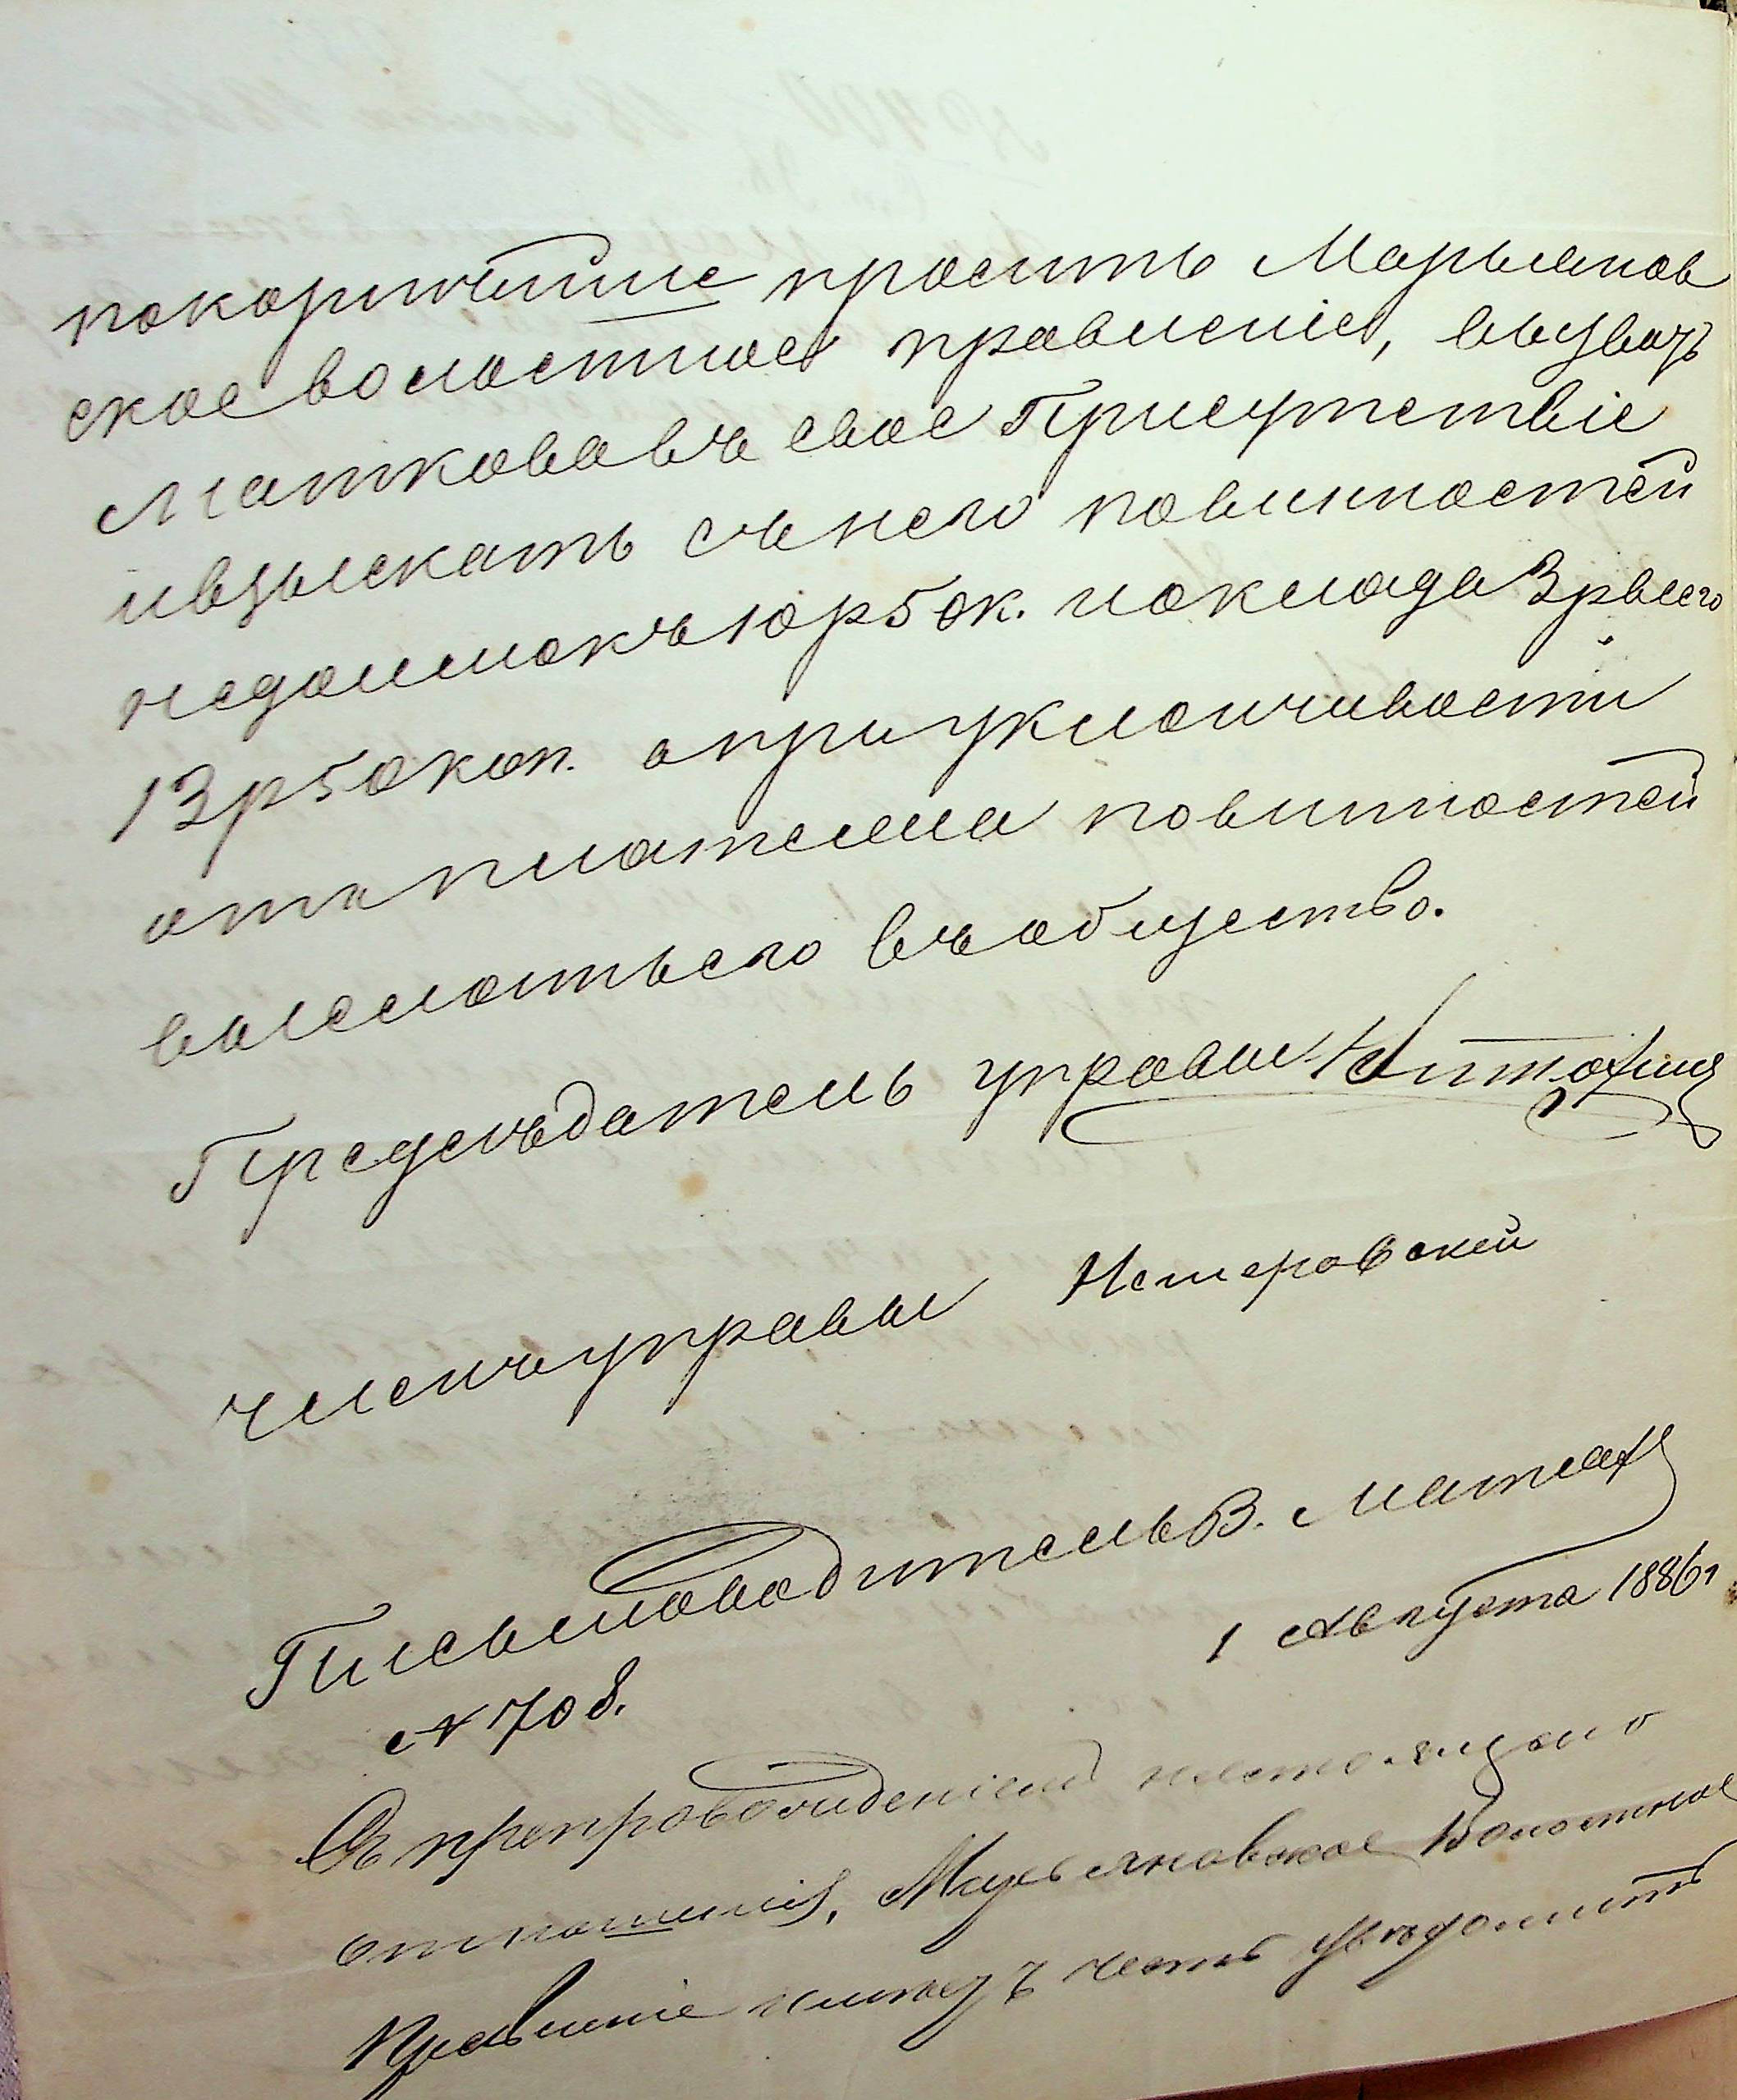 покорнѣйше просить Марьянов
ское волостное правленіе, вызвать
Маткова въ свое Присутствіе
и взыскать съ него повинностей
недоимокъ 10 р 50 к. и оклада 3 р всего
13 р 50 коп. а при уклончивости
отъ платежа повинностей
выслать его въ общество.
Предсѣдатель управы
Членъ управы Нестеровскій
Письмоводитель В.
N 708.
1 Августа 1886 г
Съ препровожденіемъ настоящаго
отношенія, Марьяновское Волостное
Правленіе имѣетъ честь увѣдомить